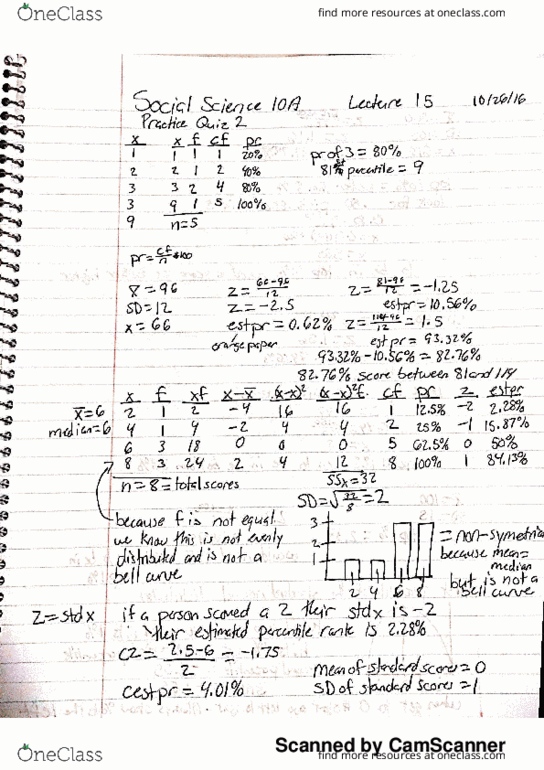 OneClass find more resources at oneclass.com
Social Science 10A Lecture 15 10/26/16
Practice Quiz 2
x x f cf pr
1 1 1 1 20% pr of 3 = 80%
2 2 1 2 40% 81st percentile = 9
3 3 2 4 80%
3 9 1 5 100%
9 n=5
pr = cf/n *100
x̄ = 96 z = 66-96/12 z = 81-96/12 = -1.25
SD = 12 z = -2.5 est pr = 10.56%
x = 66 est pr = 0.62% z = 114-96/12 = 1.5
orange paper est pr = 93.32%
93.32% - 10.56% = 82.76%
82.76% score between 81 and 114
x f xf x-x̄ (x-x̄)² (x-x̄)²f cf pr z est pr
x̄=6 2 1 2 -4 16 16 1 12.5% -2 2.28%
median=6 4 1 4 -2 4 4 2 25% -1 15.87%
6 3 18 0 0 0 5 62.5% 0 50%
8 3 24 2 4 12 8 100% 1 84.13%
n = 8 = total scores SSx = 32
SD = √32/8 = 2
because f is not equal
we know this is not evenly
distributed and is not a
bell curve
3
2
1
2 4 6 8
= non-symetrical
because mean =
median
but is not a
bell curve
Z = std x if a person scored a 2 their std x is -2
their estimated percentile rank is 2.28%
cz = 2.5-6/2 = -1.75
c est pr = 4.01%
mean of standard scores = 0
SD of standard scores = 1
Scanned by CamScanner
OneClass find more resources at oneclass.com